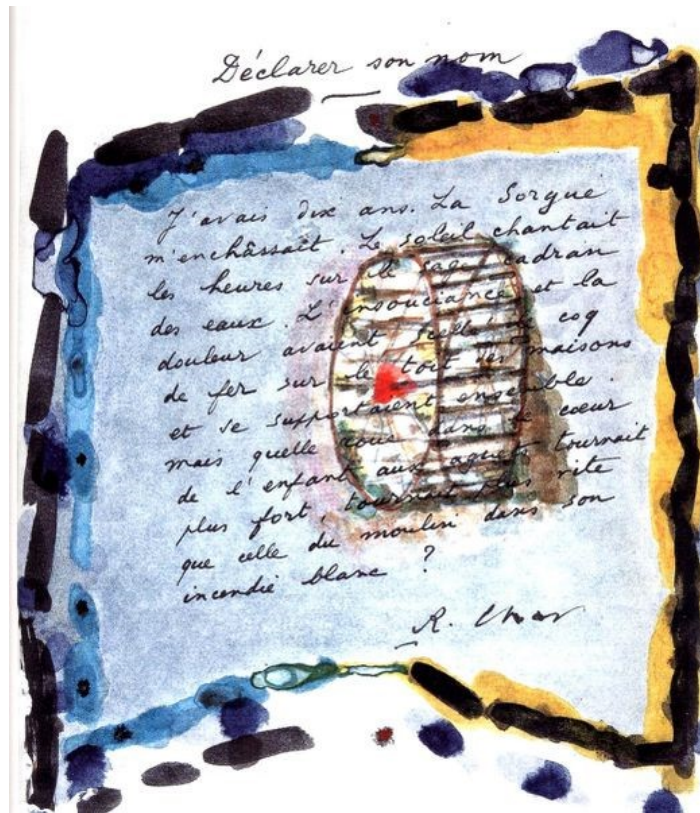 Déclarer son nom
J'avais dix ans. La Sorgue
m'enchâssait. Le soleil chantait
les heures sur le sage cadran
des eaux. L'insouciance et la
douleur avaient scellé le coq
de fer sur le toit des maisons
et se supportaient ensemble.
mais quelle roue dans le cœur
de l'enfant aux aguets tournait
plus fort, tournait plus vite
que celle du moulin dans son
incendie blanc ?
R. Char